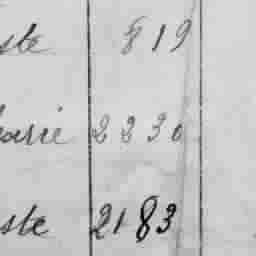 ste 819
arie 2230
ste 2183